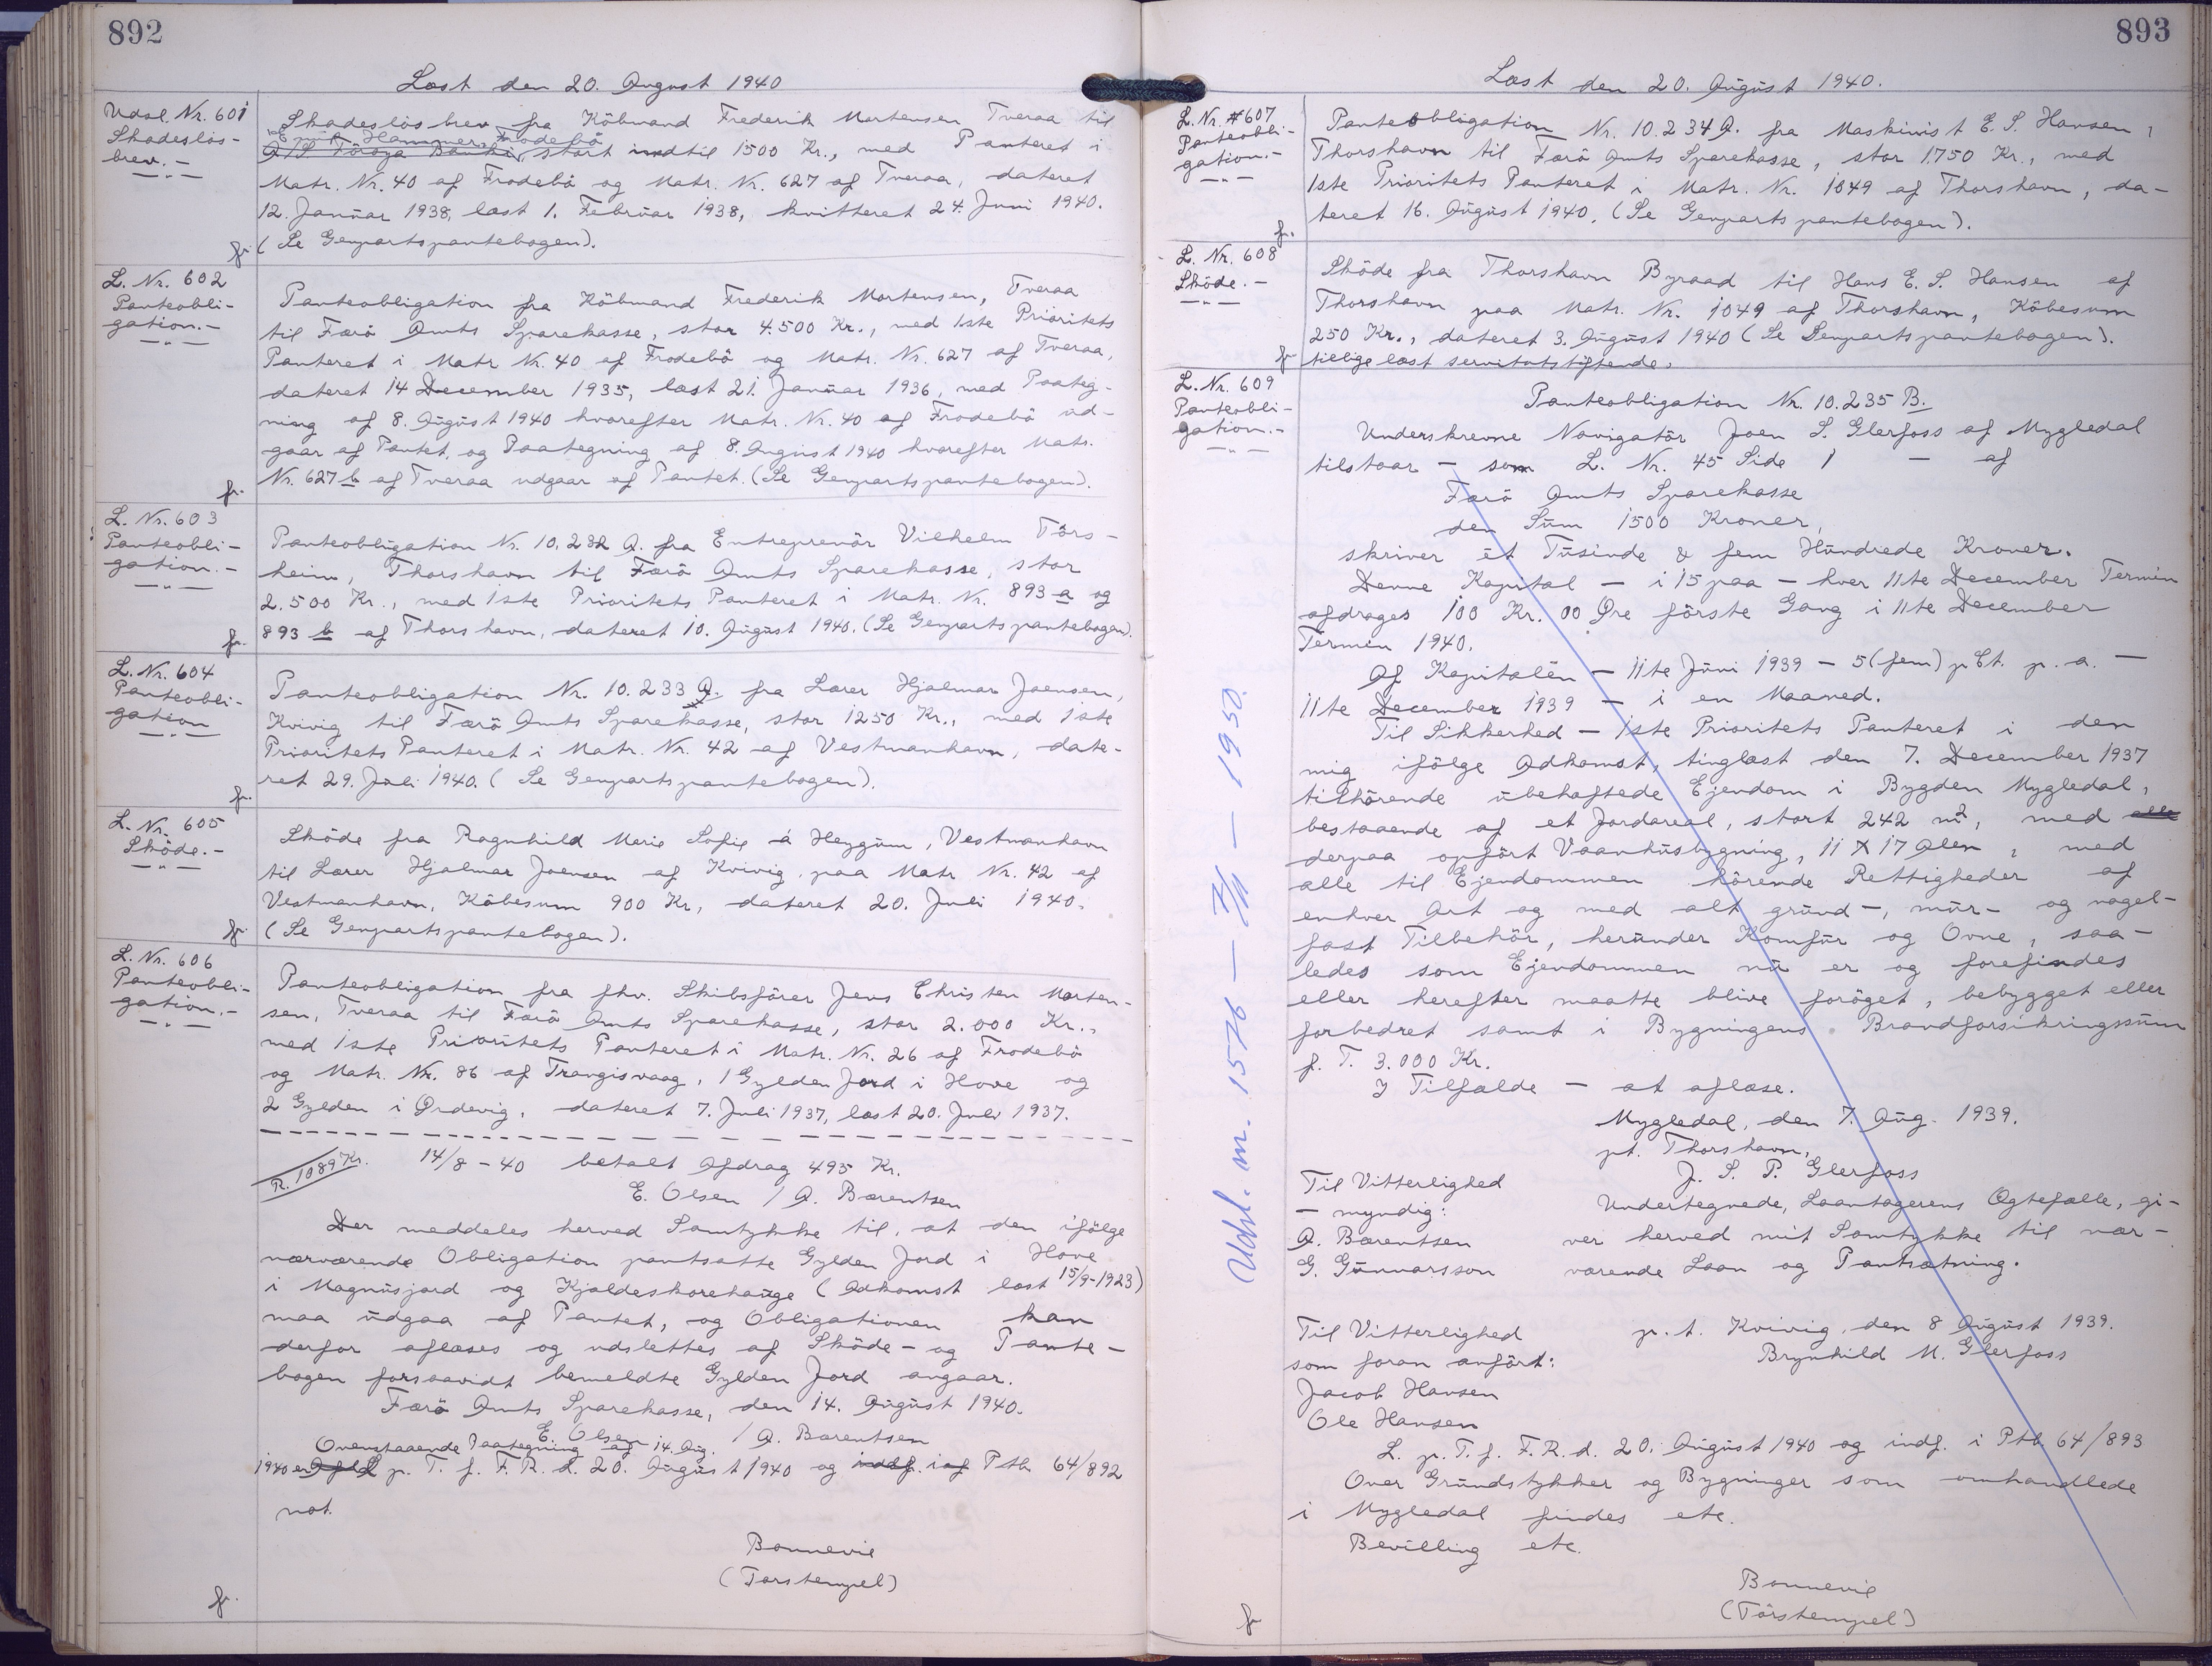 892
Læst den 20. August 1940
Udsl. Nr. 601
Skadeslös-
brev. -
Skadeslösbrev fra Köbmand Frederik Mortensen Tveraa til
Emil Hammer, Frodebö
A/S Föroya Banki, stort indtil 1500 Kr., med Panteret i
Matr. Nr. 40 af Frodebö og Matr. Nr. 627 af Tveraa, dateret
12. Januar 1938, læst 1. Februar 1938, kvitteret 24. Juni 1940.
(Se Genpartspantebogen).
L. Nr. 602
Panteobli-
gation. -
Panteobligation fra Köbmand Frederik Mortensen, Tveraa
til Færö Amts Sparekasse, stor 4.500 Kr., med 1ste Prioritets
Panteret i Matr Nr. 40 af Frodebö og Matr. Nr. 627 af Tveraa,
dateret 14 December 1935, læst 21. Januar 1936, med Paateg-
ning af 8. August 1940 hvorefter Matr. Nr. 40 af Frodebö ud-
gaar af Pantet, og Paategning af 8. August 1940 hvorefter Matr.
Nr. 627 b af Tveraa udgaar af Pantet. (Se Genpartspantebogen).
L. Nr. 603
Panteobli-
gation. -
Panteobligation Nr. 10.232 A. fra Entreprenör Vilhelm Tórs-
heim, Thorshavn til Færö Amts Sparekasse, stor
2.500 Kr., med 1ste Prioritets Panteret i Matr. Nr. 893 a og
893 b af Thorshavn, dateret 10. August 1940. (Se Genpartspantebogen).
L. Nr. 604
Panteobli-
gation
Panteobligation Nr. 10.233 A. fra Lærer Hjalmar Joensen,
Kvivig til Færö Amts Sparekasse, stor 1250 Kr., med 1ste
Prioritets Panteret i Matr. Nr. 42 af Vestmanhavn, date-
ret 29. Juli 1940. (Se Genpartspantebogen).
L. Nr. 605
Sköde. -
Sköde fra Ragnhild Marie Sofie á Heygum, Vestmanhavn
til Lærer Hjalmar Joensen af Kvivig, paa Matr Nr. 42 af
Vestmanhavn, Köbesum 900 Kr, dateret 20. Juli 1940.
(Se Genpartspantebogen).
L. Nr. 606
Panteobli-
gation. -
Panteobligation fra fhv. Skibsförer Jens Christen Morten-
sen, Tveraa til Færö Amts Sparekasse, stor 2.000 Kr.,
med 1ste Prioritets Panteret i Matr. Nr. 26 af Frodebö
og Matr. Nr. 86 af Trangisvaag, 1 Gylden Jord i Hove og
2 Gylden i Ördevig, dateret 7. Juli 1937, læst 20. Juli 1937.
R. 1089 Kr. 14/8 - 40 betalt Afdrag 495 Kr.
E. Olsen / A. Bærentsen
Der meddeles herved Samtykke til, at den ifölge
nærværende Obligation pantsatte Gylden Jord i Hove
i Magnusjord og Kjaldeskorehauge (Adkomst læst 15/9-1923)
maa udgaa af Pantet, og Obligationen kan
derfor aflæses og udslettes af Sköde- og Pante-
bogen forsaavidt bemeldte Gylden Jord angaar.
Færö Amts Sparekasse, den 14. August 1940.
E. Olsen / A. Bærentsen
Ovenstaaende Paategning af 14. Aug.
1940 er L p. T. f. F. R. d. 20. August 1940 og indf. i af Ptb 64/892
not.
Bonnevie
(Torstempel)
893
Læst den 20. August 1940.
L. Nr. 607
Panteobli-
gation. -
Panteobligation Nr. 10.234 A. fra Maskinist E. S. Hansen,
Thorshavn til Færö Amts Sparekasse, stor 1.750 Kr., med
1ste Prioritets Panteret i Matr. Nr. 1049 af Thorshavn, da-
teret 16. August 1940. (Se Genpartspantebogen).
L. Nr. 608
Sköde. -
Sköde fra Thorshavn Byraad til Hans E. S. Hansen af
Thorshavn paa Matr. Nr. 1049 af Thorshavn, Köbesum
250 Kr., dateret 3. August 1940 (Se Genpartspantebogen).
tillige læst servitutstiftende.
L. Nr. 609
Panteobli-
gation. -
Panteobligation Nr. 10.235 B.
Underskrevne Navigatör Joen S. Glerfoss af Mygledal
tilstaar - som L. Nr. 45 Side 1 - af
Færö Amts Sparekasse
den Sum 1500 Kroner,
skriver et Tusinde & fem Hundrede Kroner.
Denne Kapital - i 15 paa - hver 11te December Termin
afdrages 100 Kr. 00 Øre förste Gang i 11te December
Termin 1940.
Af Kapitalen - 11te Juni 1939 - 5 (fem) p Ct. p. a. -
11te December 1939 - i en Maaned.
Til Sikkerhed - 1ste Prioritets Panteret i den
mig ifölge Adkomst, tinglæst den 7. December 1937
tilhörende ubehæftede Ejendom i Bygden Mygledal,
bestaaende af et Jordareal, stort 242 m², med alle
derpaa opfört Vaanhusbygning, 11 X 17 Alen, med
alle til Ejendommen hörende Rettigheder af
enhver Art og med alt grund-, mur- og nagel-
fast Tilbehör, herunder Komfur og Ovne, saa-
ledes som Ejendommen nu er og forefindes
eller herefter maatte blive foröget, bebygget eller
forbedret samt i Bygningens Brandforsikringssum
p. T. 3.000 Kr.
I Tilfælde - at aflæse.
Mygledal, den 7. Aug. 1939.
pt. Thorshavn,
J. S. P. Glerfoss
Til Vitterlighed
- myndig:
A. Bærentsen
G. Gunnarsson
Undertegnede, Laantagerens Ægtefælle, gi-
ver herved mit Samtykke til nær-
værende Laan og Pantsætning.
p. t. Kvivig, den 8 August 1939.
Brynhild M. Glerfoss
Til Vitterlighed
som foran anfört:
Jacob Hansen
Ole Hansen
L. p. T. f. F. R. d. 20. August 1940 og indf. i Ptb 64/893
Over Grundstykker og Bygninger som omhandlede
i Mygledal findes etc.
Bevilling etc.
Bonnevie
(Torstempel)